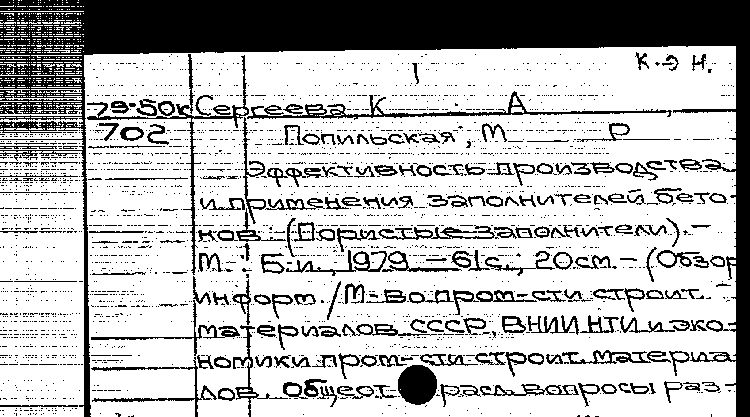 К-Э Н.
79-50к Сергеева, К А ,
702 Попильская, М Р
Эффективность производства
и применения заполнителей бето-
нов: (Пористые заполнители). -
М.: Б.и., 1979. - 61с.; 20см. - (Обзор
информ. / М-во пром-сти строит.
материалов СССР, ВНИИ НТИ и эко-
номики пром-сти строит. материа-
лов. Общеот расл. вопросы раз-